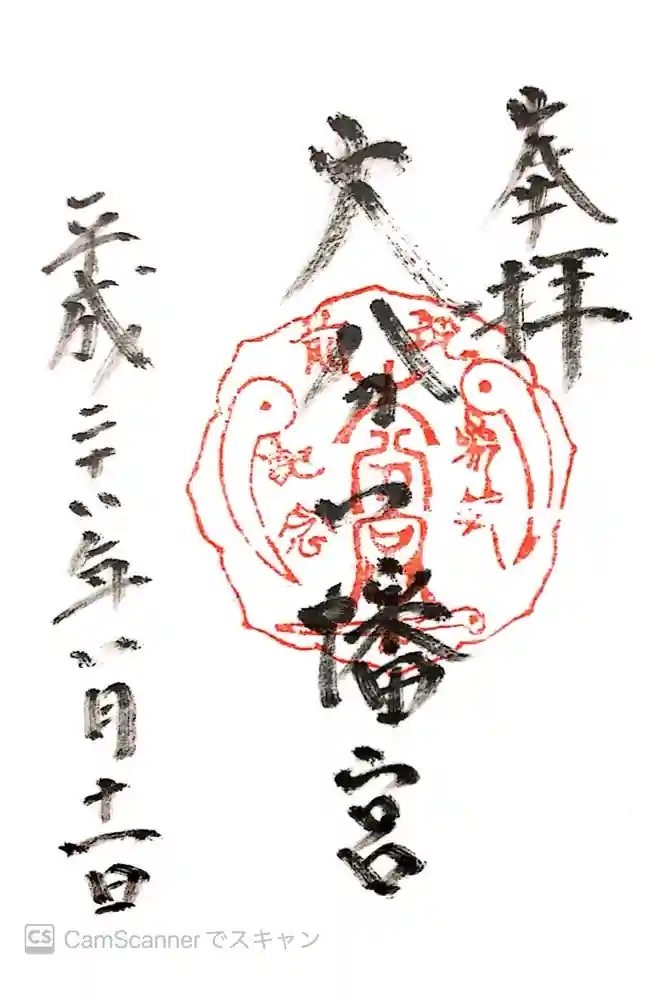 奉拝
大分八幡宮
筑前
記念
平成二十八年八月十一日
CS CamScannerでスキャン